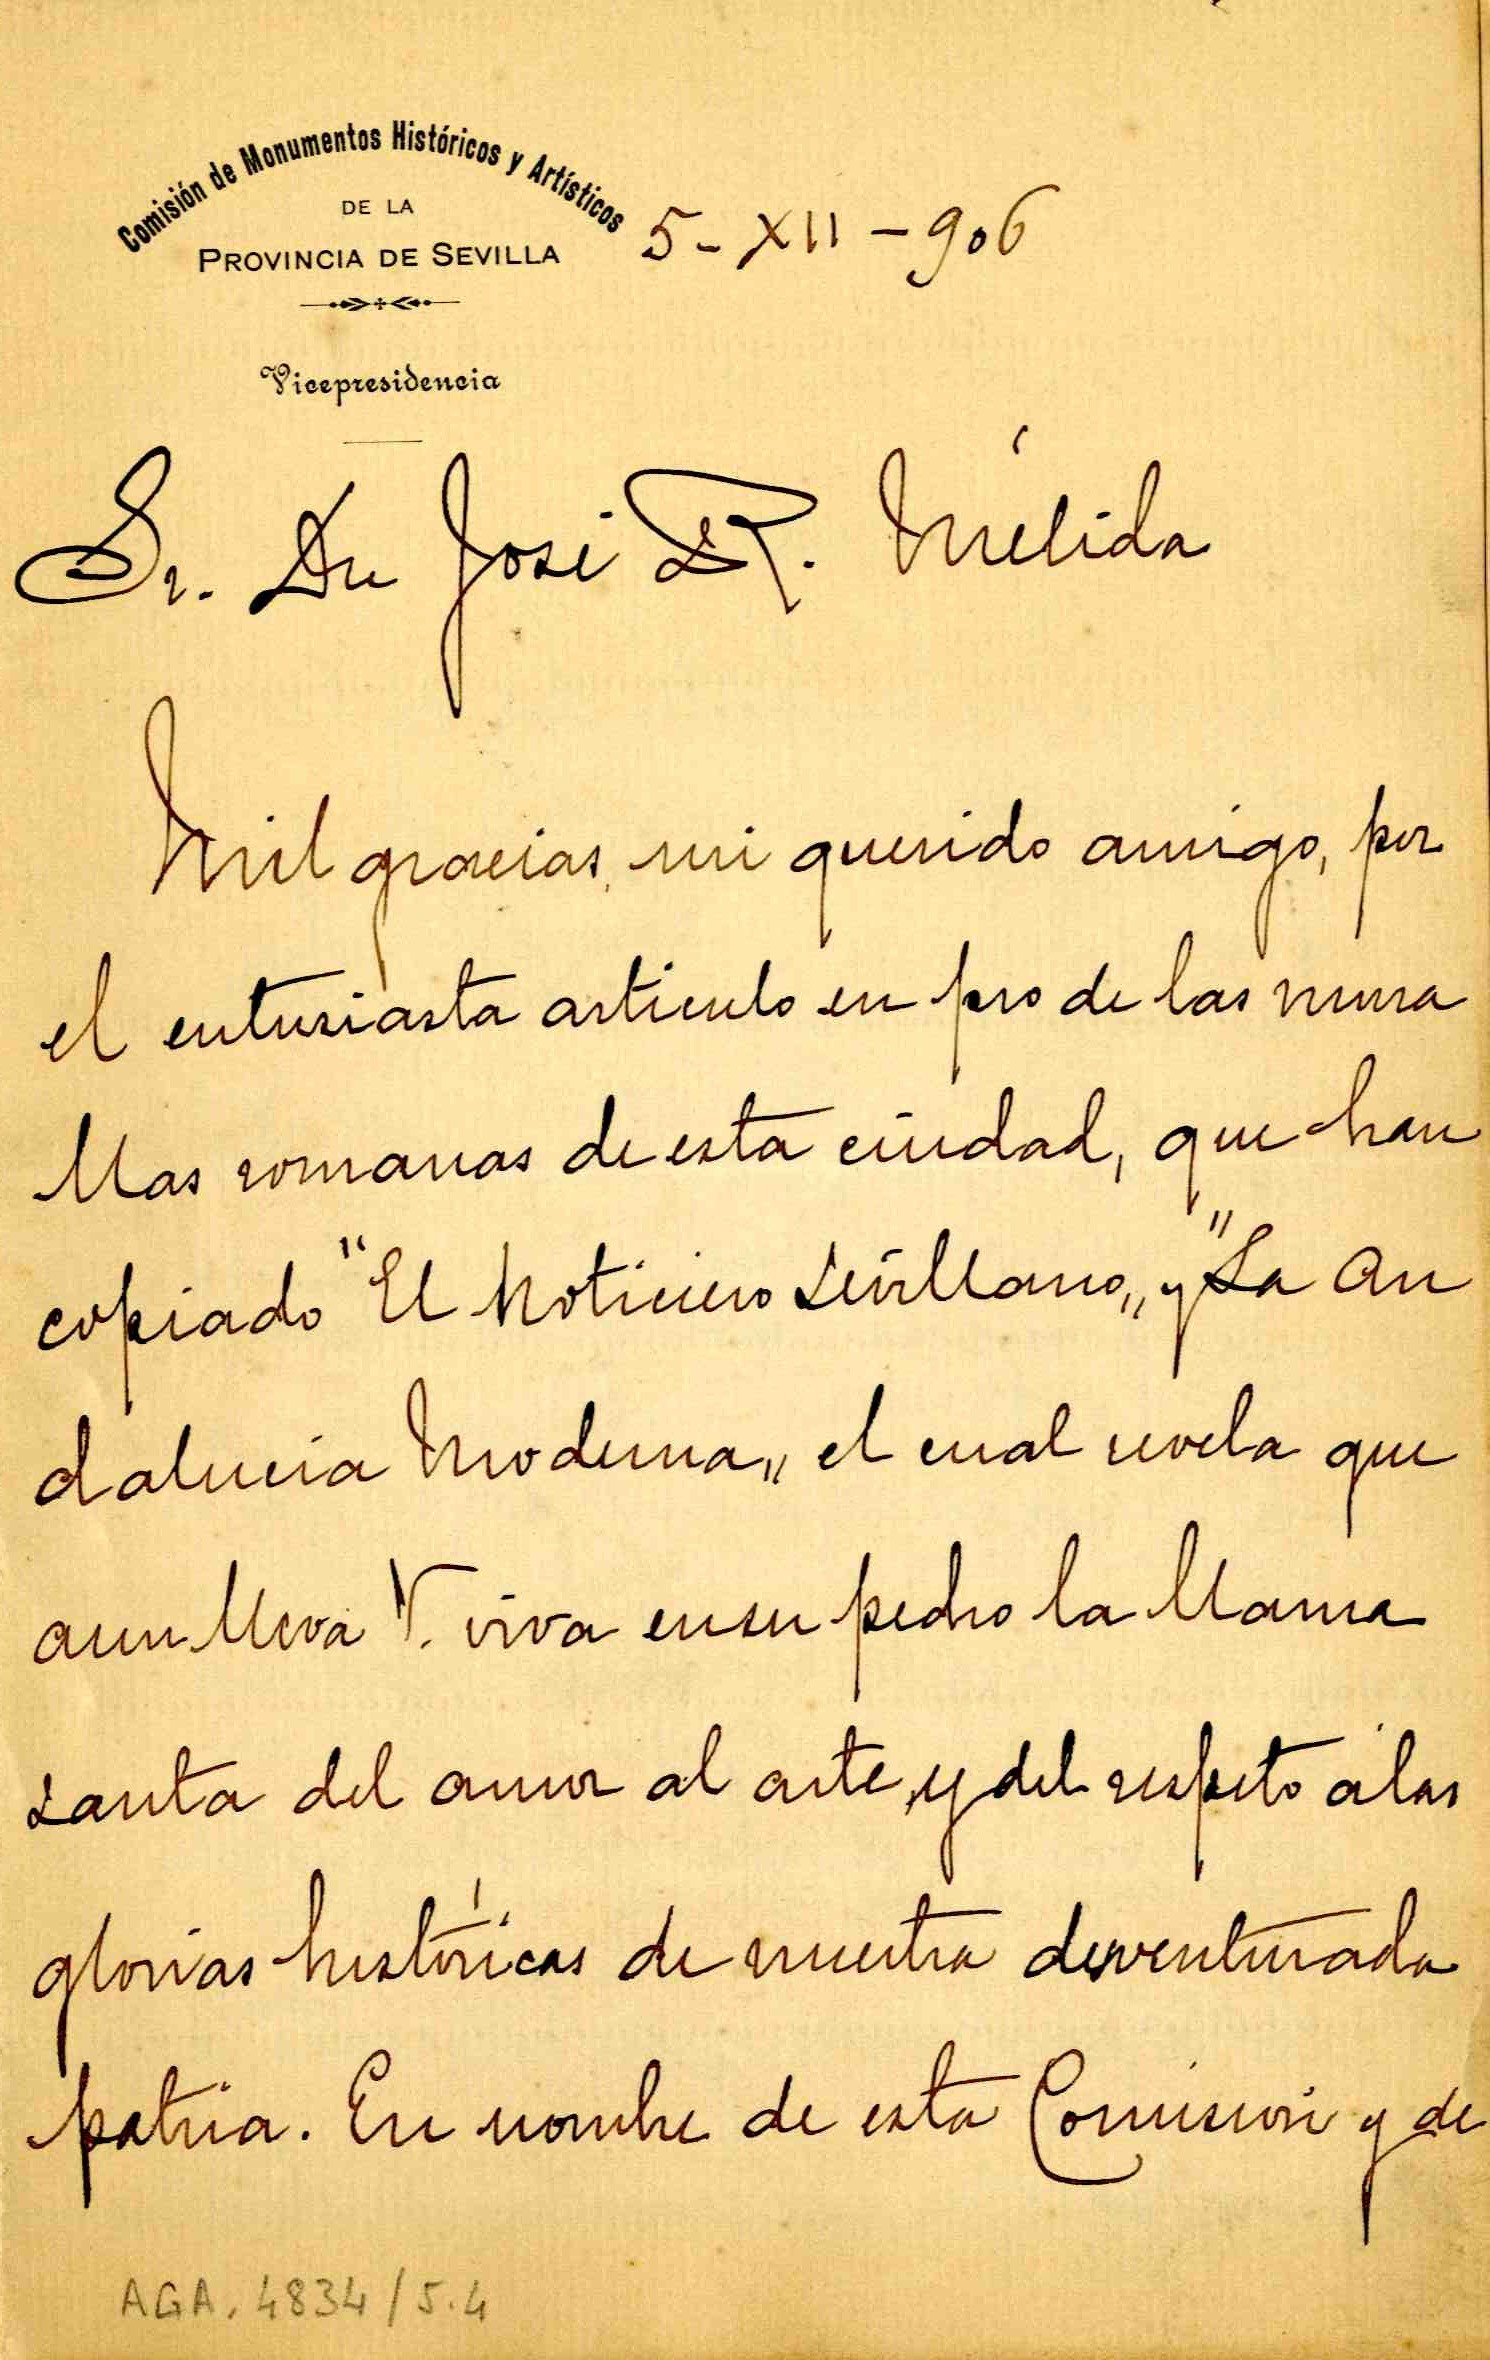 Comisión de Monumentos Históricos y Artísticos
DE LA
PROVINCIA DE SEVILLA
5-XII-906
Vicepresidencia
Sr. Dn José R. Mélida
Mil gracias, mi querido amigo, por
el entusiasta articulo en pro de las mura
llas romanas de esta ciudad, que han
copiado "El Noticiero Sevillano„ y "La An
dalucia Moderna„ el cual revela que
aun lleva V. viva en su pecho la llama
santa del amor al arte, y del respeto á las
glorias históricas de nuestra desventurada
patria. En nombre de esta Comisión y de
AGA. 4834/5.4